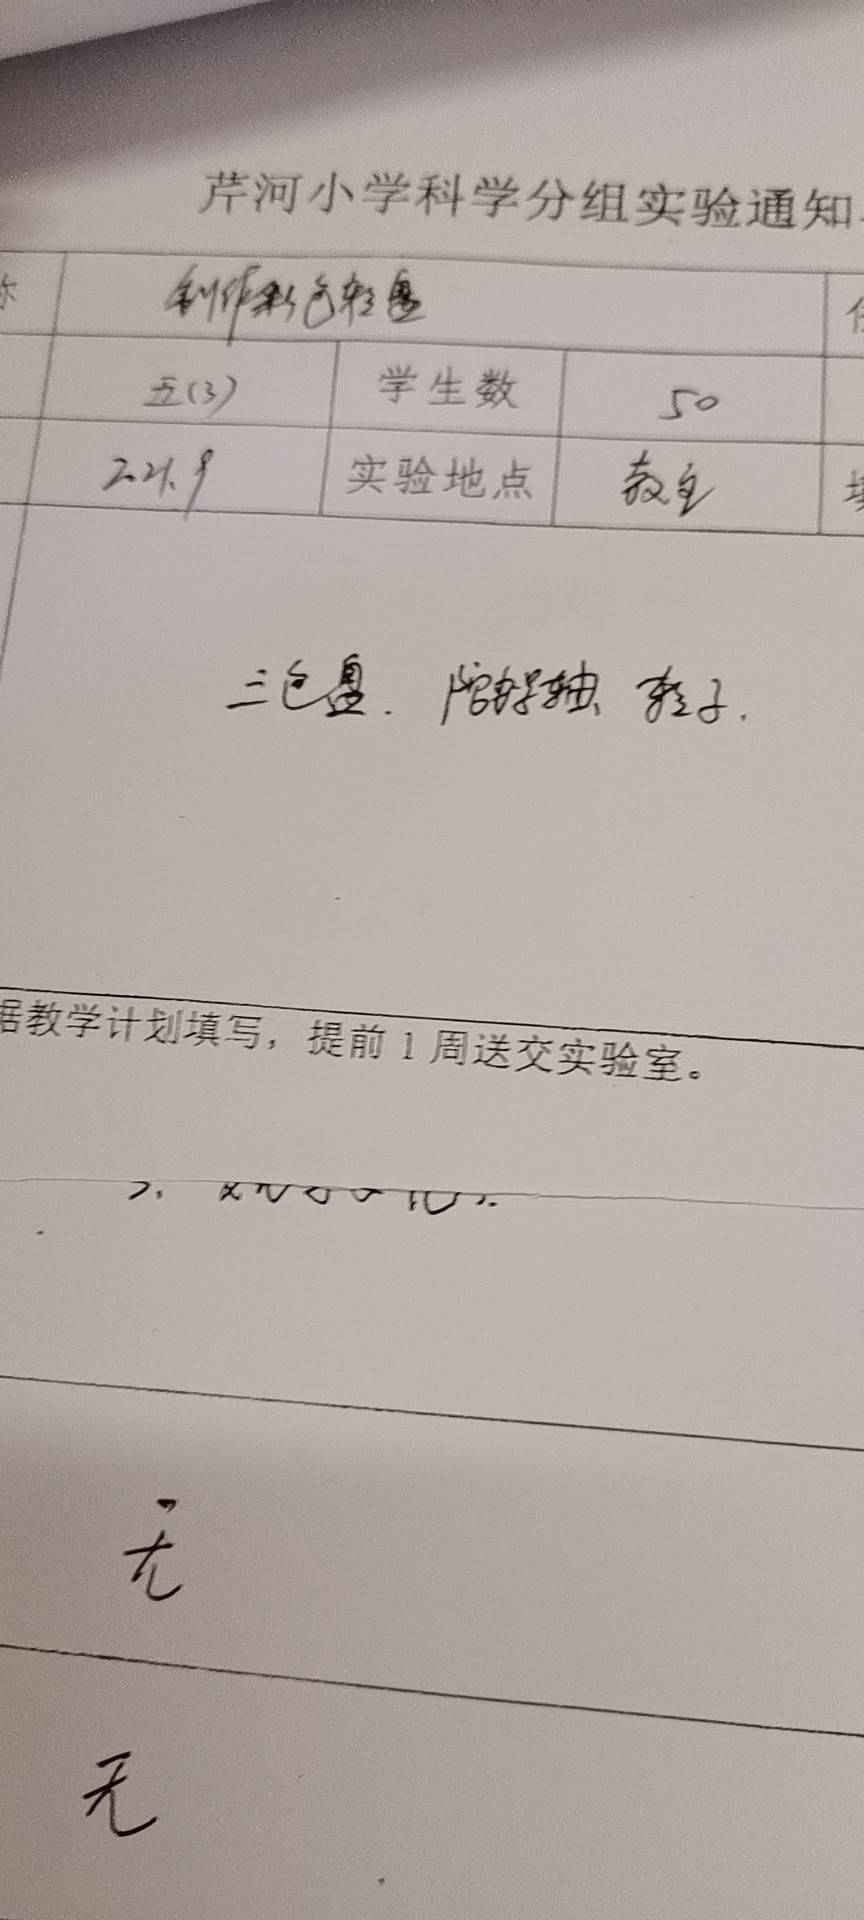 芹河小学科学分组实验通知
制作彩色轮盘
五(3) 学生数 50
22.9 实验地点 教室
三色盘. 陀螺轴 轮子.
据教学计划填写，提前1周送交实验室。
无
无